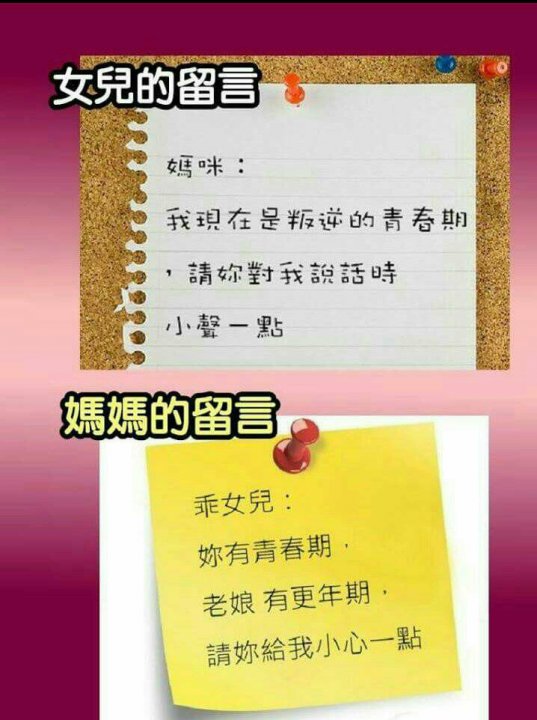 女兒的留言
媽咪：
我現在是叛逆的青春期
，請妳對我說話時
小聲一點
媽媽的留言
乖女兒：
妳有青春期，
老娘 有更年期，
請妳給我小心一點